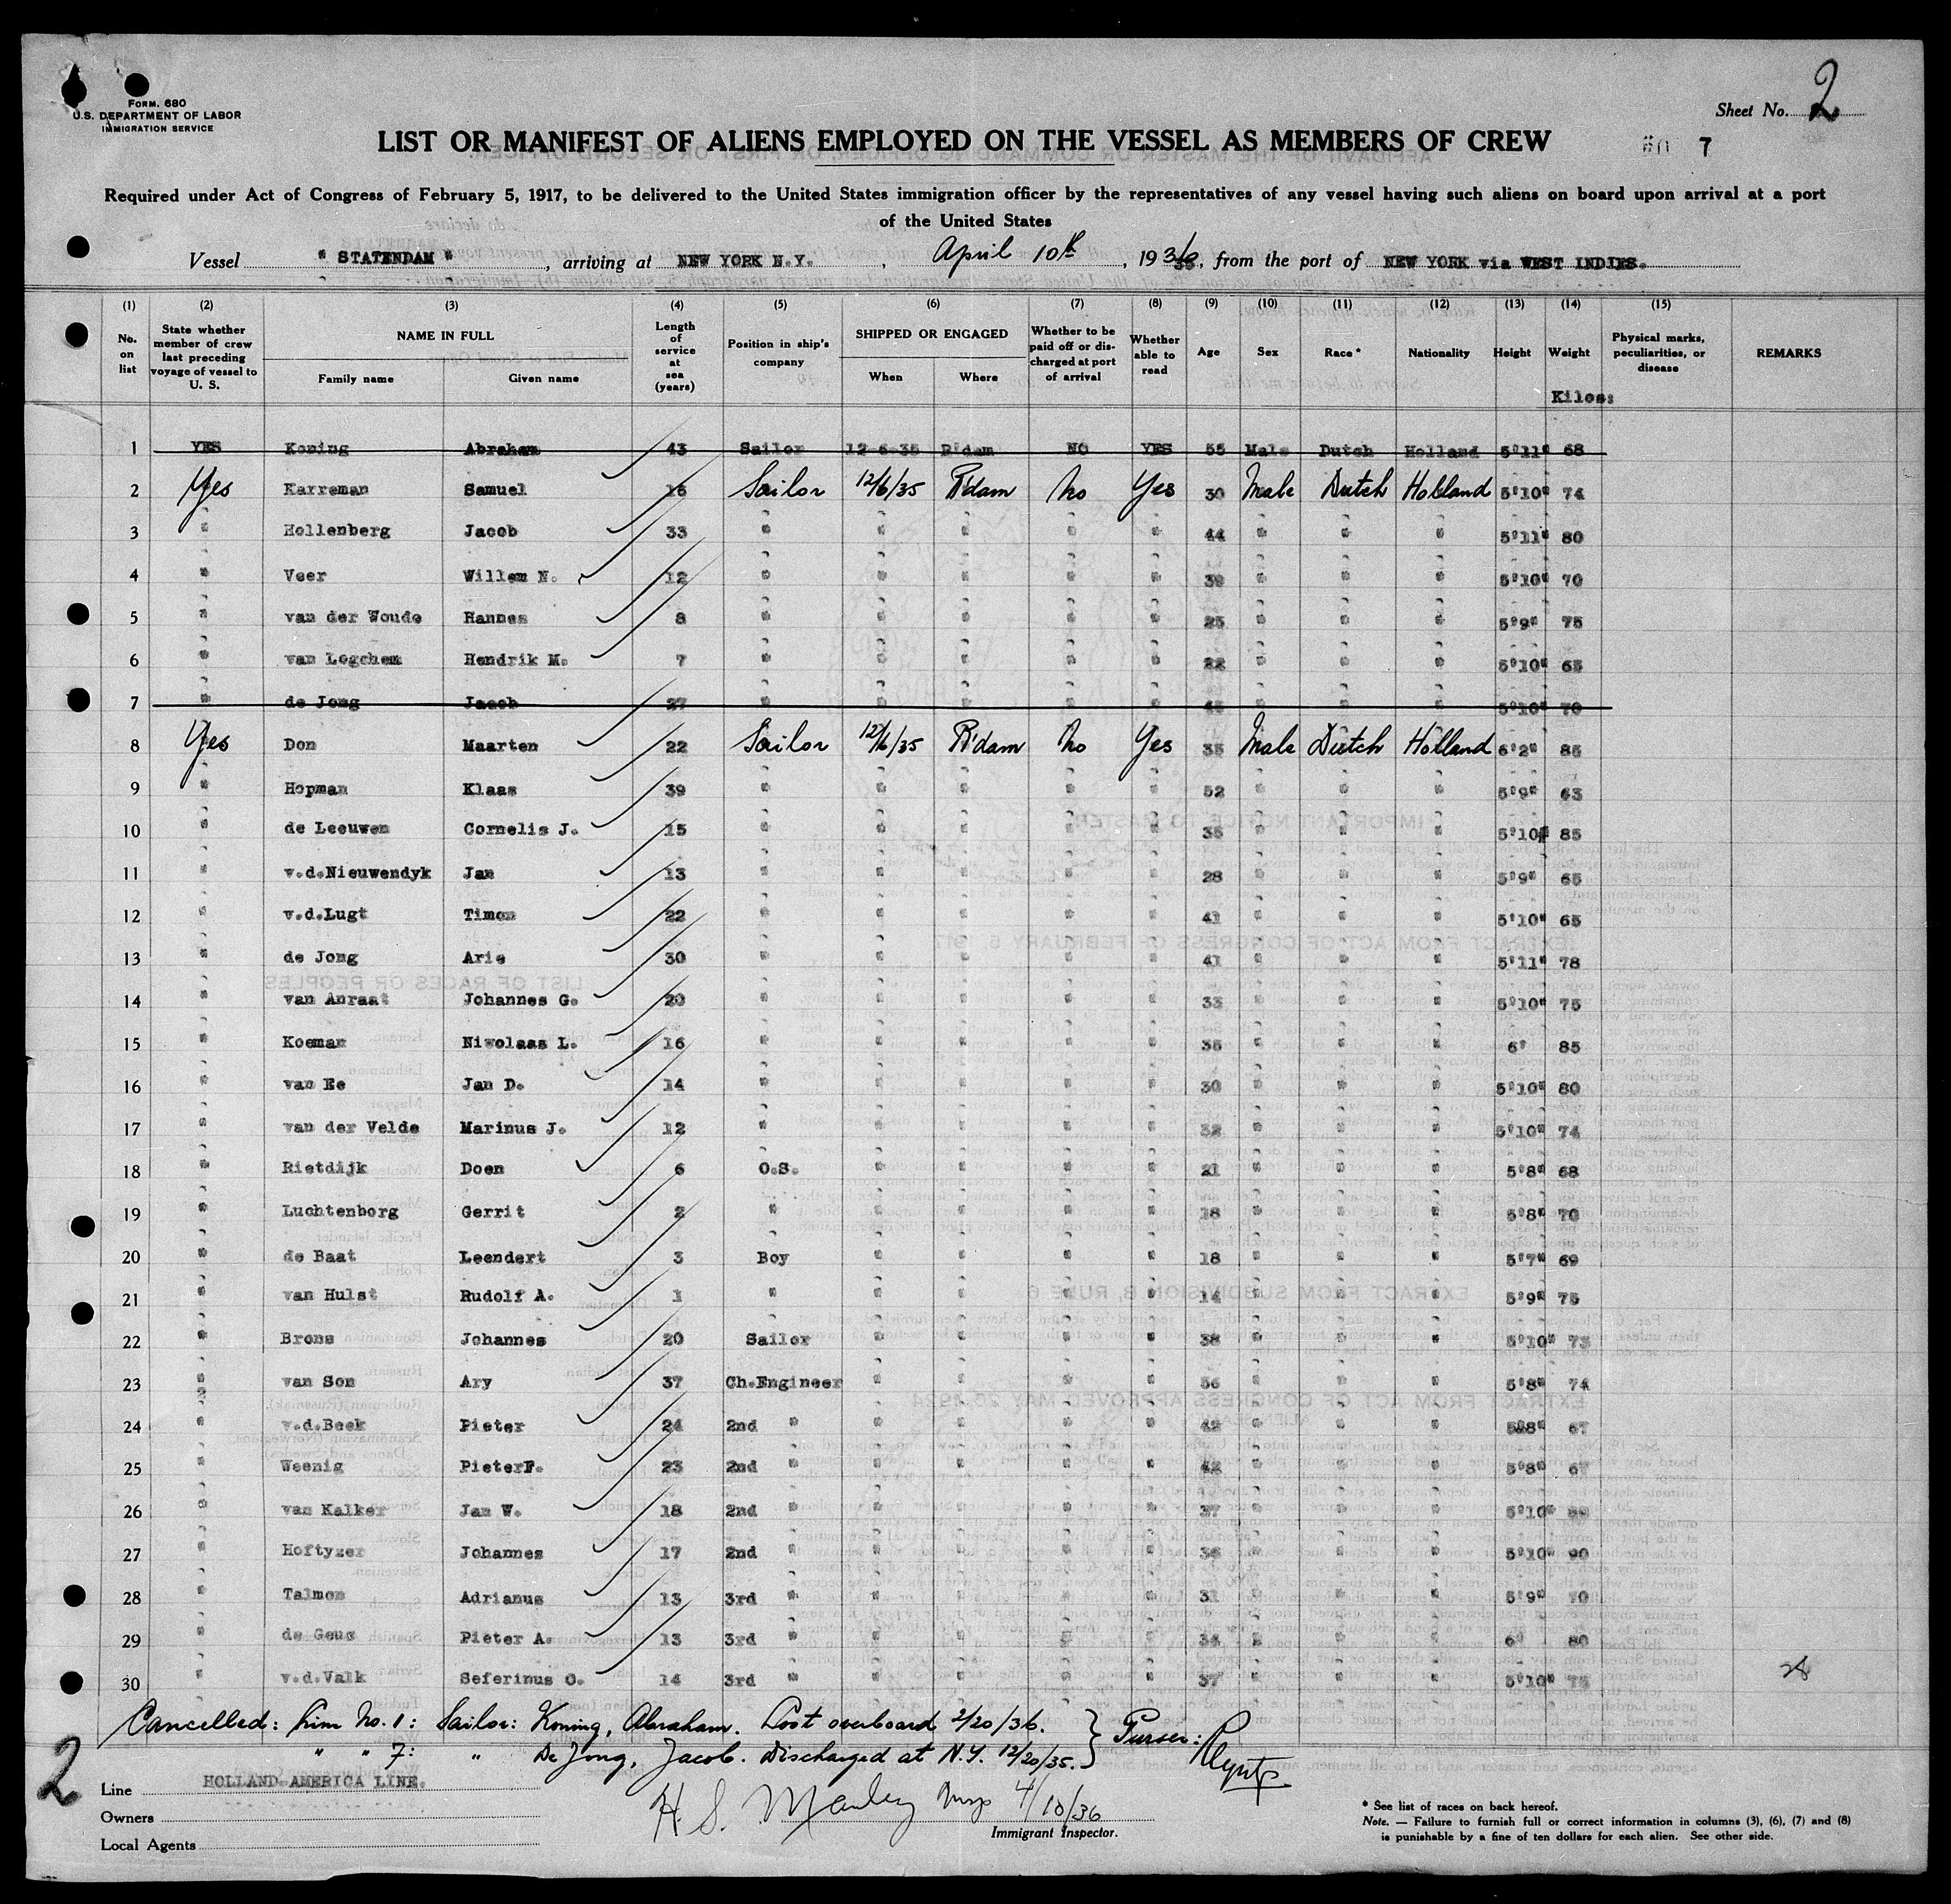 FORM. 680
U.S. DEPARTMENT OF LABOR
IMMIGRATION SERVICE
Sheet No. 2
LIST OR MANIFEST OF ALIENS EMPLOYED ON THE VESSEL AS MEMBERS OF CREW
7
Required under Act of Congress of February 5, 1917, to be delivered to the United States immigration officer by the representatives of any vessel having such aliens on board upon arrival at a port
of the United States
Vessel " STATENDAM ", arriving at NEW YORK N.Y., April 10th, 1936, from the port of NEW YORK via WEST INDIES.
(1) (2) (3) (4) (5) (6) (7) (8) (9) (10) (11) (12) (13) (14) (15)
No. on list State whether member of crew last preceding voyage of vessel to U. S. NAME IN FULL Family name Given name Length of service at sea (years) Position in ship's company SHIPPED OR ENGAGED When Where Whether to be paid off or discharged at port of arrival Whether able to read Age Sex Race* Nationality Height Weight Physical marks, peculiarities, or disease REMARKS
Kilos:
1 YES Koning Abraham 43 Sailor 12-6-35 R'dam NO YES 55 Male Dutch Holland 5'11" 68
2 Yes Karreman Samuel 16 Sailor 12/6/35 R'dam No Yes 30 Male Dutch Holland 5'10" 74
3 " Hollenberg Jacob 33 " " " " " 44 " " " 5'11" 80
4 " Veer Willem N. 12 " " " " " 39 " " " 5'10" 70
5 " van der Woude Hannes 8 " " " " " 25 " " " 5'9" 75
6 " van Logchem Hendrik M. 7 " " " " " 22 " " " 5'10" 65
7 " de Jong Jacob 27 " " " " " 45 " " " 5'10" 70
8 Yes Don Maarten 22 Sailor 12/6/35 R'dam No Yes 35 Male Dutch Holland 6'2" 85
9 " Hopman Klaas 39 " " " " " 52 " " " 5'9" 63
10 " de Leeuwen Cornelis J. 15 " " " " " 35 " " " 5'10" 85
11 " v.d.Nieuwendyk Jan 13 " " " " " 28 " " " 5'9" 65
12 " v.d.Lugt Timon 22 " " " " " 41 " " " 5'10" 65
13 " de Jong Arie 30 " " " " " 41 " " " 5'11" 78
14 " van Anraat Johannes G. 20 " " " " " 33 " " " 5'10" 75
15 " Koeman Niwolaas L. 16 " " " " " 35 " " " 6' 85
16 " van Ee Jan D. 14 " " " " " 30 " " " 5'10" 80
17 " van der Velde Marinus J. 12 " " " " " 32 " " " 5'10" 74
18 " Rietdijk Doen 6 O.S. " " " " 21 " " " 5'8" 68
19 " Luchtenborg Gerrit 2 " " " " " 18 " " " 5'8" 70
20 " de Baat Leendert 3 Boy " " " " 18 " " " 5'7" 69
21 " van Hulst Rudolf A. 1 " " " " " 14 " " " 5'9" 75
22 " Brons Johannes 20 Sailor " " " " 38 " " " 5'10" 73
23 " van Son Ary 37 Ch.Engineer " " " " 56 " " " 5'8" 74
24 " v.d.Beek Pieter 24 2nd " " " " " 42 " " " 5'8" 67
25 " Weenig PieterF. 23 2nd " " " " " 42 " " " 5'8" 67
26 " van Kalker Jan W. 18 2nd " " " " " 37 " " " 5'10"
27 " Hoftyzer Johannes 17 2nd " " " " " 36 " " " 5'10" 90
28 " Talmon Adrianus 13 3rd " " " " " 31 " " " 5'9" 70
29 " de Geus Pieter A. 13 3rd " " " " " 34 " " " 6' 80
30 " v.d.Valk Seferinus C. 14 3rd " " " " " 37 " " " 5'10" 75
Cancelled: Line No. 1: Sailor: Koning, Abraham. Lost overboard 2/20/36. } Purser:
" " 7: " De Jong, Jacob. Discharged at N.Y. 12/20/35.
2
Line HOLLAND-AMERICA LINE.
Owners
Local Agents
H. S. Manley Insp 4/10/36
Immigrant Inspector.
* See list of races on back hereof.
Note. — Failure to furnish full or correct information in columns (3), (6), (7) and (8)
is punishable by a fine of ten dollars for each alien. See other side.